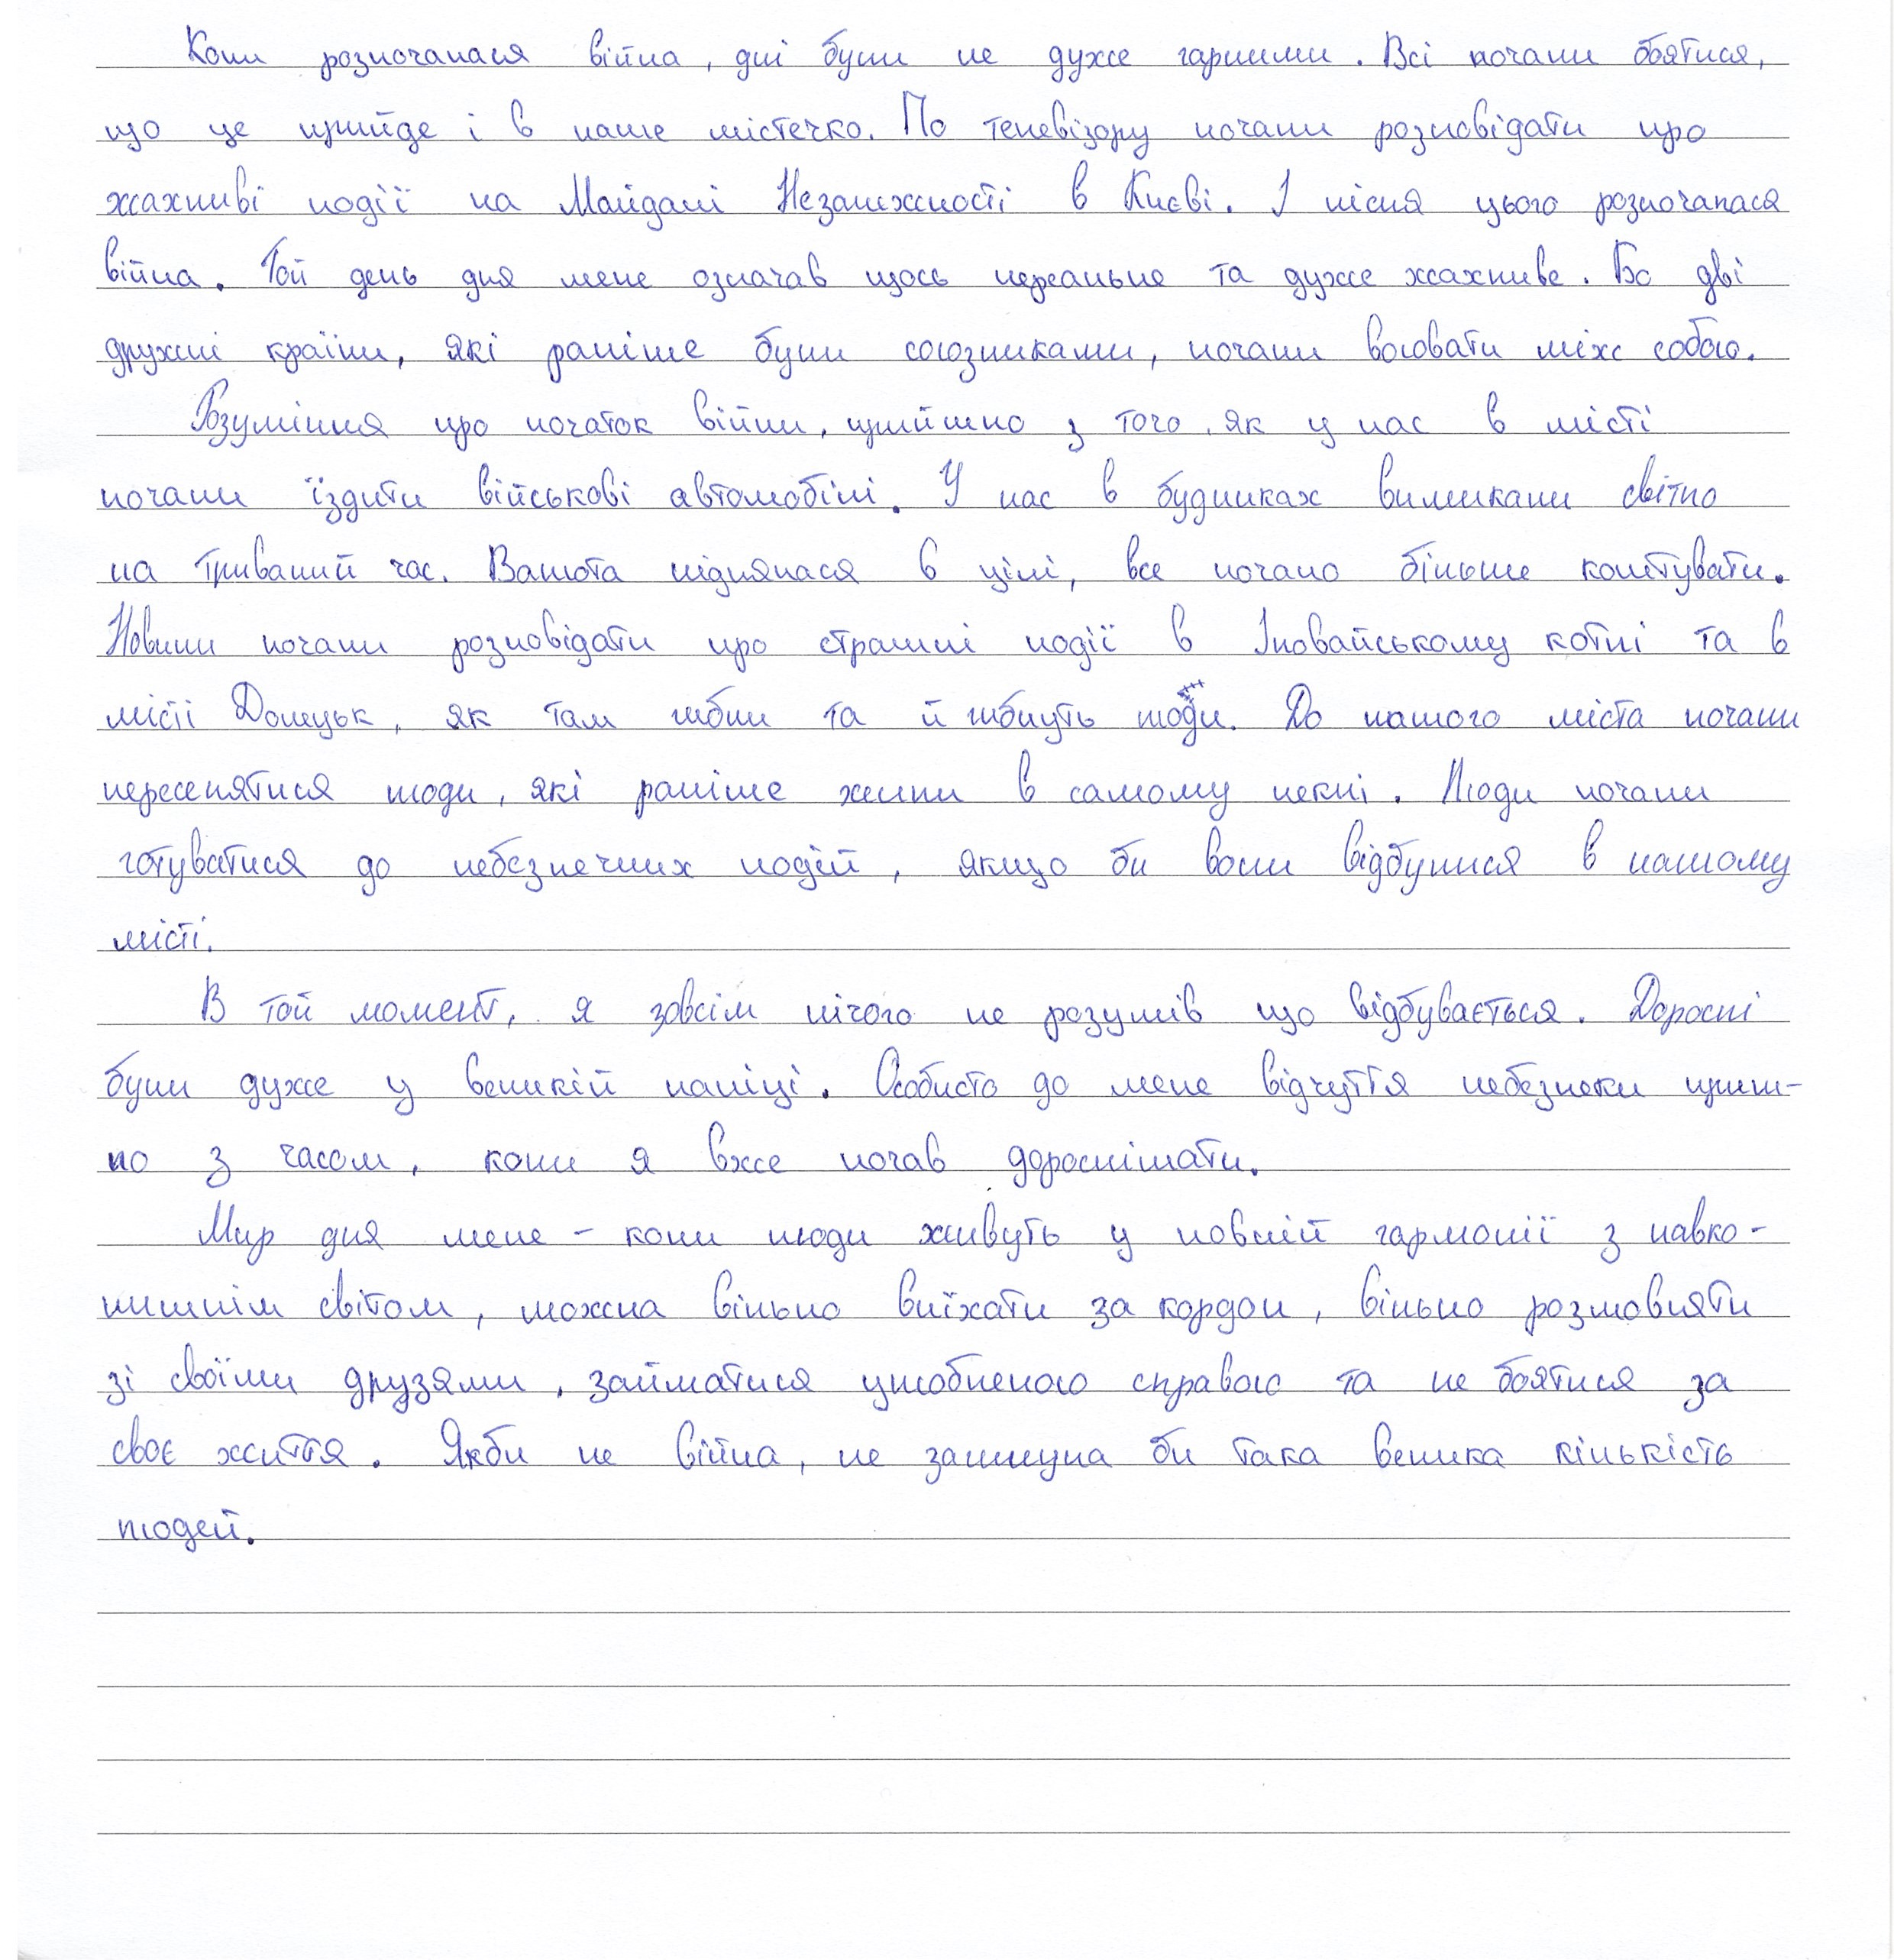 Коли розпочалася війна, дні були не дуже гарними. Всі почали боятися,
що це прийде і в наше містечко. По телевізору почали розповідати про
жахливі події на Майдані Незалежності в Києві. І після цього розпочалася
війна. Той день для мене означав щось нереальне та дуже жахливе. Бо дві
дружні країни, які раніше були союзниками, почали воювати між собою.
Розуміння про початок війни, прийшло з того, як у нас в місті
почали їздити військові автомобілі. У нас в будинках вимикали світло
на тривалий час. Валюта піднялася в ціні, все почало більше коштувати.
Новини почали розповідати про страшні події в Іловайському котлі та в
місті Донецьк, як там гибли та й гибнуть люди. До нашого міста почали
переселятися люди, які раніше жили в самому пеклі. Люди почали
готуватися до небезпечних подій, якщо би вони відбулися в нашому
місті.
В той момент, я зовсім нічого не розумів що відбувається. Дорослі
були дуже у великій паніці. Особисто до мене відчуття небезпеки приш-
ло з часом, коли я вже почав дорослішати.
Мир для мене - коли люди живуть у повній гармонії з навко-
лишнім світом, можна вільно виїхати за кордон, вільно розмовляти
зі своїми друзями, займатися улюбленою справою та не боятися за
своє життя. Якби не війна, не загинула би така велика кількість
людей.